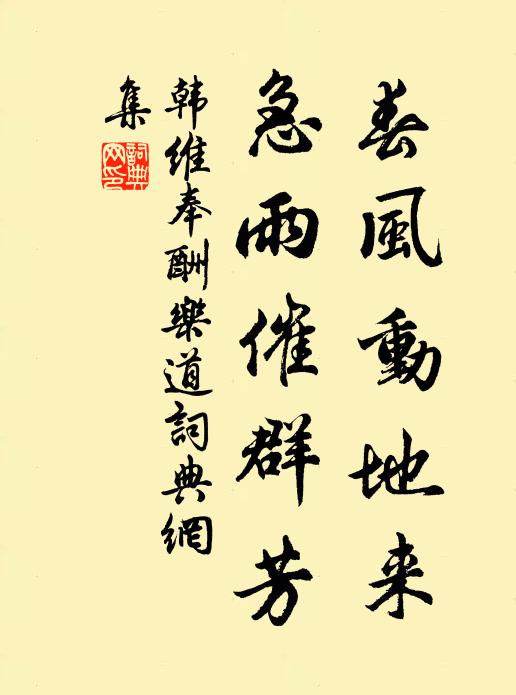 春風動地来
急雨催群芳
韩維奉酬樂道詞典網
集
詞典
网印